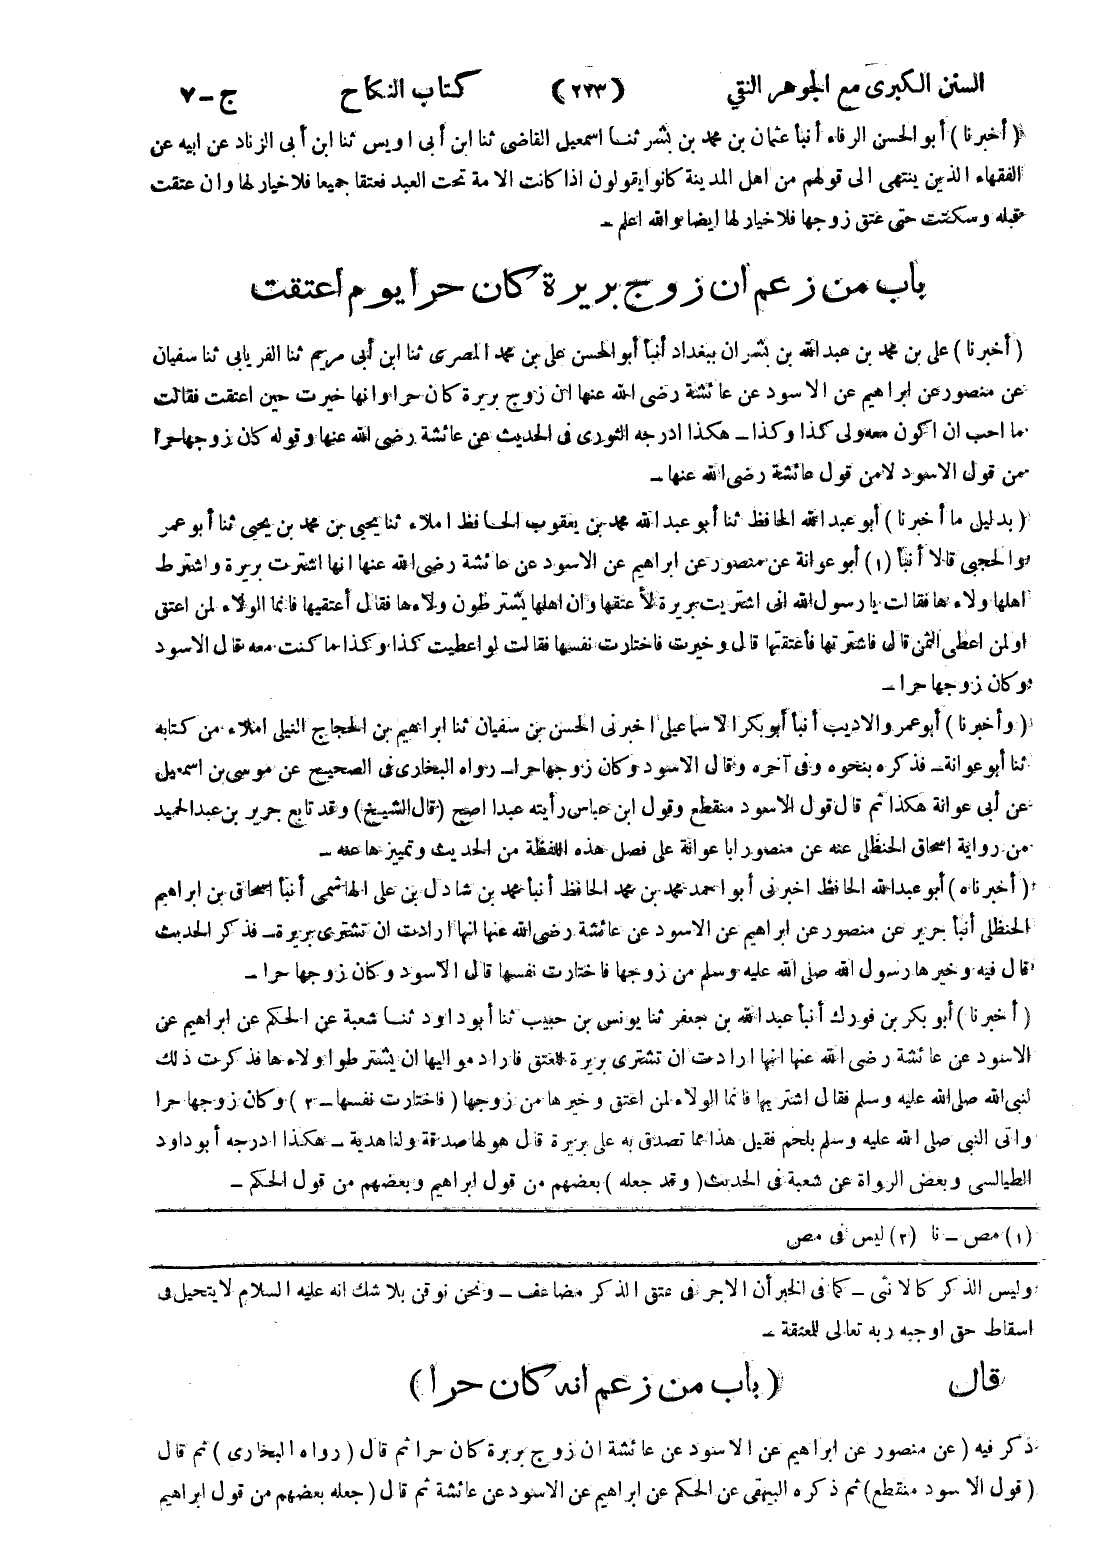 السنن الكبرى مع الجوهر النقي (٢٢٣) كتاب النكاح ج-٧
(أخبرنا) أبو الحسن الرفاء أنبأ عثمان بن محمد بن بشر ثنا اسمعيل القاضى ثنا ابن أبى اويس ثنا ابن أبى الزناد عن ابيه عن
الفقهاء الذين ينتهى الى قولهم من اهل المدينة كانوا يقولون اذا كانت الامة تحت العبد فعتقا جميعا فلا خيار لها وان عتقت
قبله وسكتت حتى عتق زوجها فلا خيار لها ايضا والله اعلم -
باب من زعم ان زوج بريرة كان حرا يوم اعتقت
(أخبرنا) على بن محمد بن عبد الله بن بشران ببغداد أنبأ أبو الحسن على بن محمد المصرى ثنا ابن أبى مريم ثنا الفريابى ثنا سفيان
عن منصور عن ابراهيم عن الاسود عن عائشة رضى الله عنها ان زوج بريرة كان حرا وانها خيرت حين اعتقت فقالت
ما احب ان اكون معه ولى كذا وكذا - هكذا ادرجه الثورى فى الحديث عن عائشة رضى الله عنها وقوله كان زوجها حرا
من قول الاسود لا من قول عائشة رضى الله عنها -
(بدليل ما أخبرنا) أبو عبد الله الحافظ ثنا أبو عبد الله محمد بن يعقوب الحافظ املاء ثنا يحيى بن محمد بن يحيى ثنا أبو عمر
والحجبى قالا أنبأ (١) أبو عوانة عن منصور عن ابراهيم عن الاسود عن عائشة رضى الله عنها انها اشترت بريرة واشترط
اهلها ولاءها فقالت يا رسول الله انى اشتريت بريرة لأعتقها وان اهلها يشترطون ولاءها فقال أعتقيها فانما الولاء لمن اعتق
او لمن اعطى الثمن قال فاشترتها فأعتقتها قال وخيرت فاختارت نفسها فقالت لو اعطيت كذا وكذا ما كنت معه قال الاسود
وكان زوجها حرا -
(وأخبرنا) أبو عمرو الاديب أنبأ أبو بكر الاسماعيلى اخبرنى الحسن بن سفيان ثنا ابراهيم بن الحجاج النيلى املاء من كتابه
ثنا أبو عوانة - فذكره بنحوه وفى آخره وقال الاسود وكان زوجها حرا - رواه البخارى فى الصحيح عن موسى بن اسمعيل
عن أبى عوانة هكذا ثم قال قول الاسود منقطع وقول ابن عباس رأيته عبدا اصح (قال الشيخ) وقد تابع جرير بن عبد الحميد
من رواية اسحاق الحنظلى عنه عن منصور ابا عوانة على فصل هذه اللفظة من الحديث وتمييزها عنه -
(أخبرناه) أبو عبد الله الحافظ اخبرنى أبو احمد محمد بن محمد الحافظ أنبأ محمد بن شادل بن على الهاشمى أنبأ اسحاق بن ابراهيم
الحنظلى أنبأ جرير عن منصور عن ابراهيم عن الاسود عن عائشة رضى الله عنها انها ارادت ان تشترى بريرة - فذكر الحديث
قال فيه وخيرها رسول الله صلى الله عليه وسلم من زوجها فاختارت نفسها قال الاسود وكان زوجها حرا -
(أخبرنا) أبو بكر بن فورك أنبأ عبد الله بن جعفر ثنا يونس بن حبيب ثنا أبو داود ثنا شعبة عن الحكم عن ابراهيم عن
الاسود عن عائشة رضى الله عنها انها ارادت ان تشترى بريرة للعتق فاراد مواليها ان يشترطوا ولاءها فذكرت ذلك
لنبى الله صلى الله عليه وسلم فقال اشتريها فانما الولاء لمن اعتق وخيرها من زوجها (فاختارت نفسها - ٢) وكان زوجها حرا
واتى النبى صلى الله عليه وسلم بلحم فقيل هذا مما تصدق به على بريرة قال هو لها صدقة ولنا هدية - هكذا ادرجه أبو داود
الطيالسى وبعض الرواة عن شعبة فى الحديث (وقد جعله) بعضهم من قول ابراهيم وبعضهم من قول الحكم -
(١) مص - نا (٢) ليس فى مص
وليس الذكر كالانثى - كما فى الخبر أن الاجر فى عتق الذكر مضاعف - ونحن نوقن بلا شك انه عليه السلام لا يتحيل فى
اسقاط حق اوجبه ربه تعالى للمعتقة -
قال (باب من زعم انه كان حرا)
ذكر فيه (عن منصور عن ابراهيم عن الاسود عن عائشة ان زوج بريرة كان حرا ثم قال (رواه البخارى) ثم قال
(قول الاسود منقطع) ثم ذكره البيهقى عن الحكم عن ابراهيم عن الاسود عن عائشة ثم قال (جعله بعضهم من قول ابراهيم